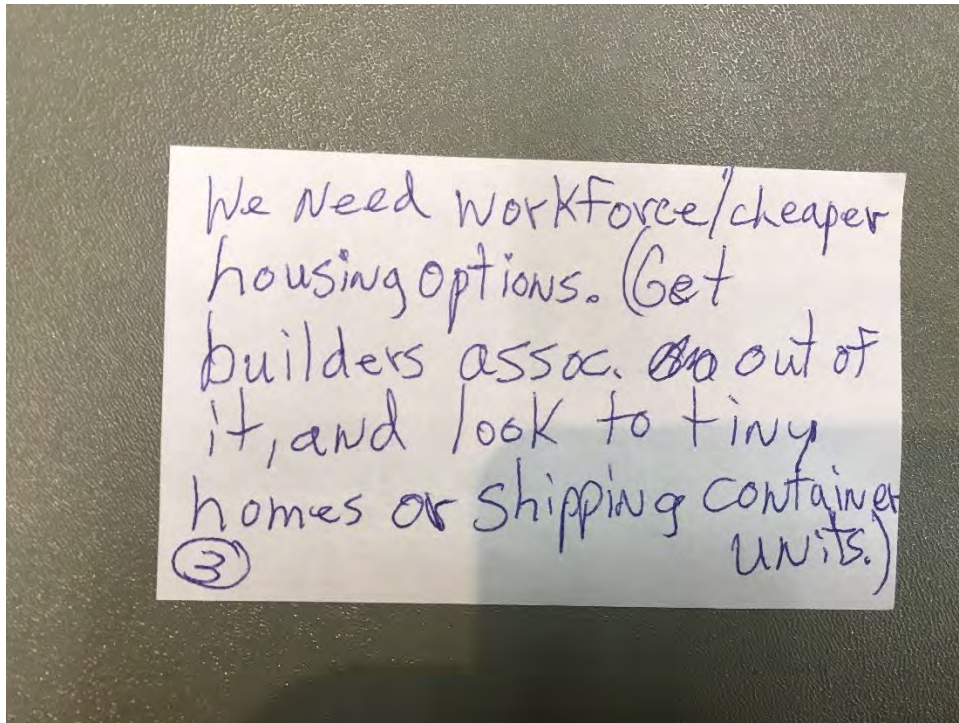 We Need Workforce/cheaper
housing options. (Get
builders assoc. out of
it, and look to tiny
homes or shipping container
units.)
3